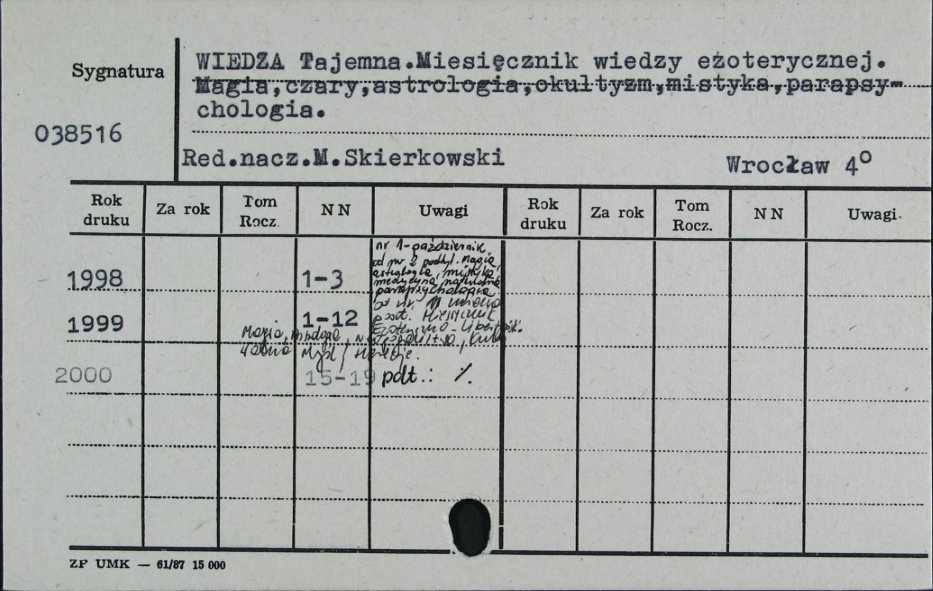 Sygnatura
038516
WIEDZA Tajemna.Miesięcznik wiedzy eżoterycznej.
Magia,czary,astrologia,okultyzm,mistyka,parapsy-
chologia.
Red.nacz.M.Skierkowski
Wrocław 4º
Rok druku Za rok Tom Rocz. NN Uwagi Rok druku Za rok Tom Rocz. NN Uwagi
nr 1-październik
od nr 2 podtyt. Magia
astrologia, mistyka,
medycyna naturalna
parapsychologia
1998 1-3
od nr. 11 zmiana
podt. Miesięcznik
1999 1-12
Ezoteryczno-
Magia,
Wolna Myśl / Herezje.
2000 15-19 pdt.: ٪.
ZP UMK — 61/87 15 000